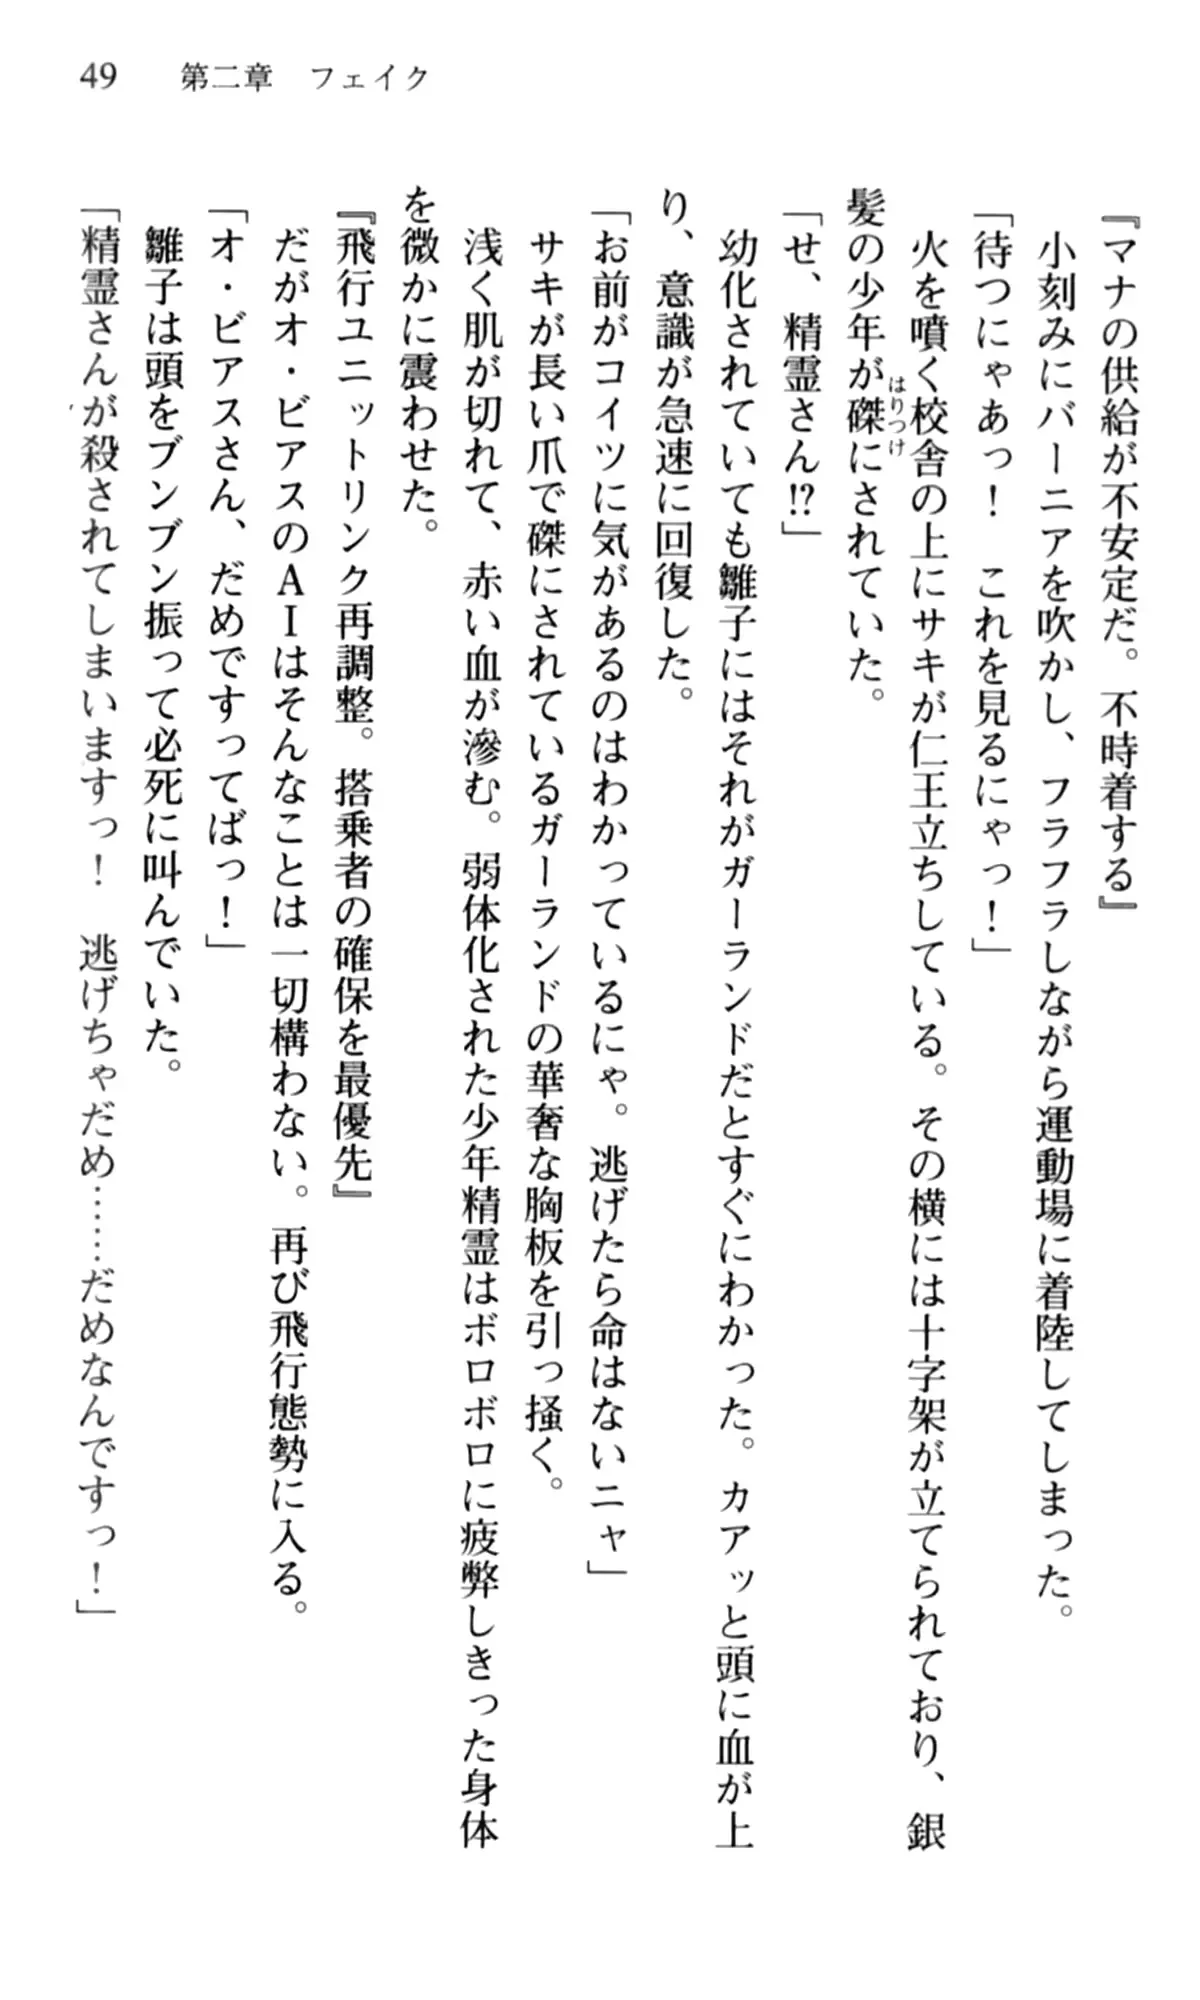 49　第二章　フェイク
『マナの供給が不安定だ。不時着する』
小刻みにバーニアを吹かし、フラフラしながら運動場に着陸してしまった。
「待つにゃあっ！　これを見るにゃっ！」
火を噴く校舎の上にサキが仁王立ちしている。その横には十字架が立てられており、銀
髪の少年が磔にされていた。
はりつけ
「せ、精霊さん!?」
幼化されていても雛子にはそれがガーランドだとすぐにわかった。カアッと頭に血が上
り、意識が急速に回復した。
「お前がコイツに気があるのはわかっているにゃ。逃げたら命はないニャ」
サキが長い爪で磔にされているガーランドの華奢な胸板を引っ掻く。
浅く肌が切れて、赤い血が滲む。弱体化された少年精霊はボロボロに疲弊しきった身体
を微かに震わせた。
『飛行ユニットリンク再調整。搭乗者の確保を最優先』
だがオ・ビアスのＡＩはそんなことは一切構わない。再び飛行態勢に入る。
「オ・ビアスさん、だめですってばっ！」
雛子は頭をブンブン振って必死に叫んでいた。
「精霊さんが殺されてしまいますっ！　逃げちゃだめ……だめなんですっ！」